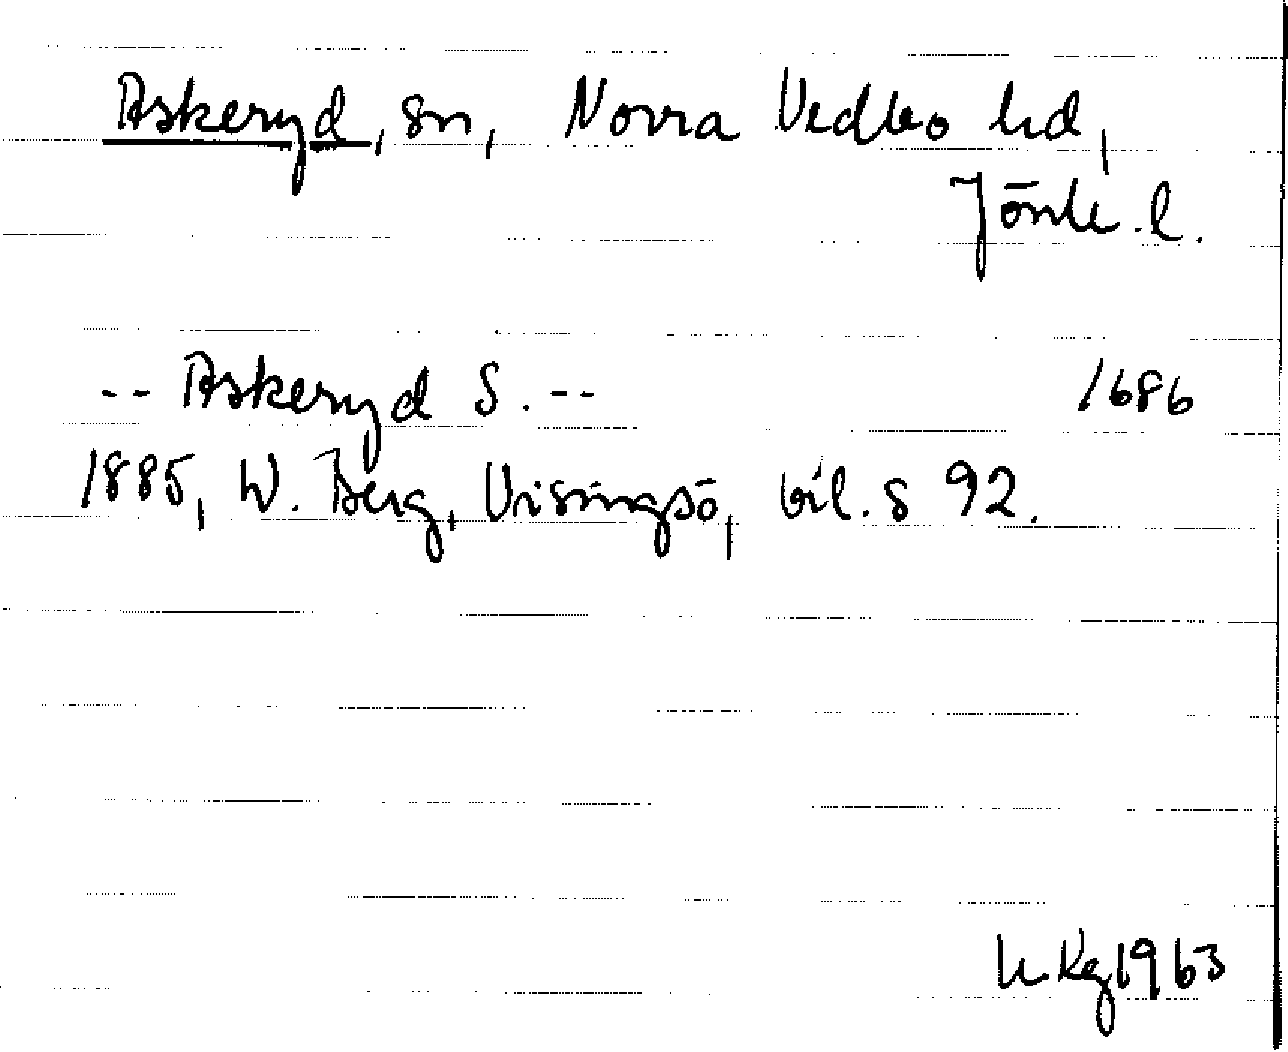 Askeryd, sn, Norra Vedbo hd,
Jönk. l.
-- Askeryd S. -- 1686
1885, W. Berg, Visingsö, bil. s 92.
Kg 1963